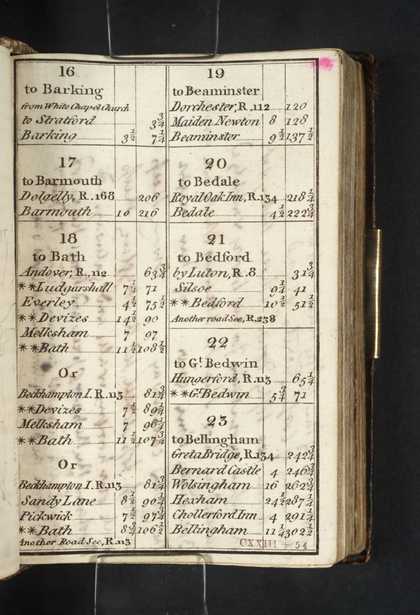 16
to Barking
from White Chapel Church
to Stratford 3¾
Barking 3½ 7¼
17
to Barmouth
Dolgelly, R. 168 206
Barmouth 10 216
18
to Bath
Andover, R. 112 63¾
**Ludgarshall 7½ 71
Everley 4½ 75½
**Devizes 14½ 90
Melksham 7 97
**Bath 11½ 108½
Or
Beckhampton I. R. 113 81¾
**Devizes 7½ 89¼
Melksham 7 96¼
**Bath 11½ 107¾
Or
Beckhampton I. R. 113 81¾
Sandy Lane 8½ 90¼
Pickwick 7½ 97¾
**Bath 8¾ 106½
Another Road See, R. 113
19
to Beaminster
Dorchester, R. 112 120
Maiden Newton 8 128
Beaminster 9½ 137½
20
to Bedale
Royal Oak Inn, R. 134 218¼
Bedale 4½ 222¾
21
to Bedford
by Luton, R. 8 31¾
Silsoe 9¼ 41
**Bedford 10½ 51½
Another road See, R. 238
22
to Gt. Bedwin
Hungerford, R. 113 65¼
**Gt. Bedwin 5¾ 71
23
to Bellingham
Greta Bridge, R. 134 242¾
Bernard Castle 4 246¾
Wolsingham 16 262¾
Hexham 24½ 287¼
Chollerford Inn 4 291¼
Bellingham 11¼ 302½
CXXIII - 54